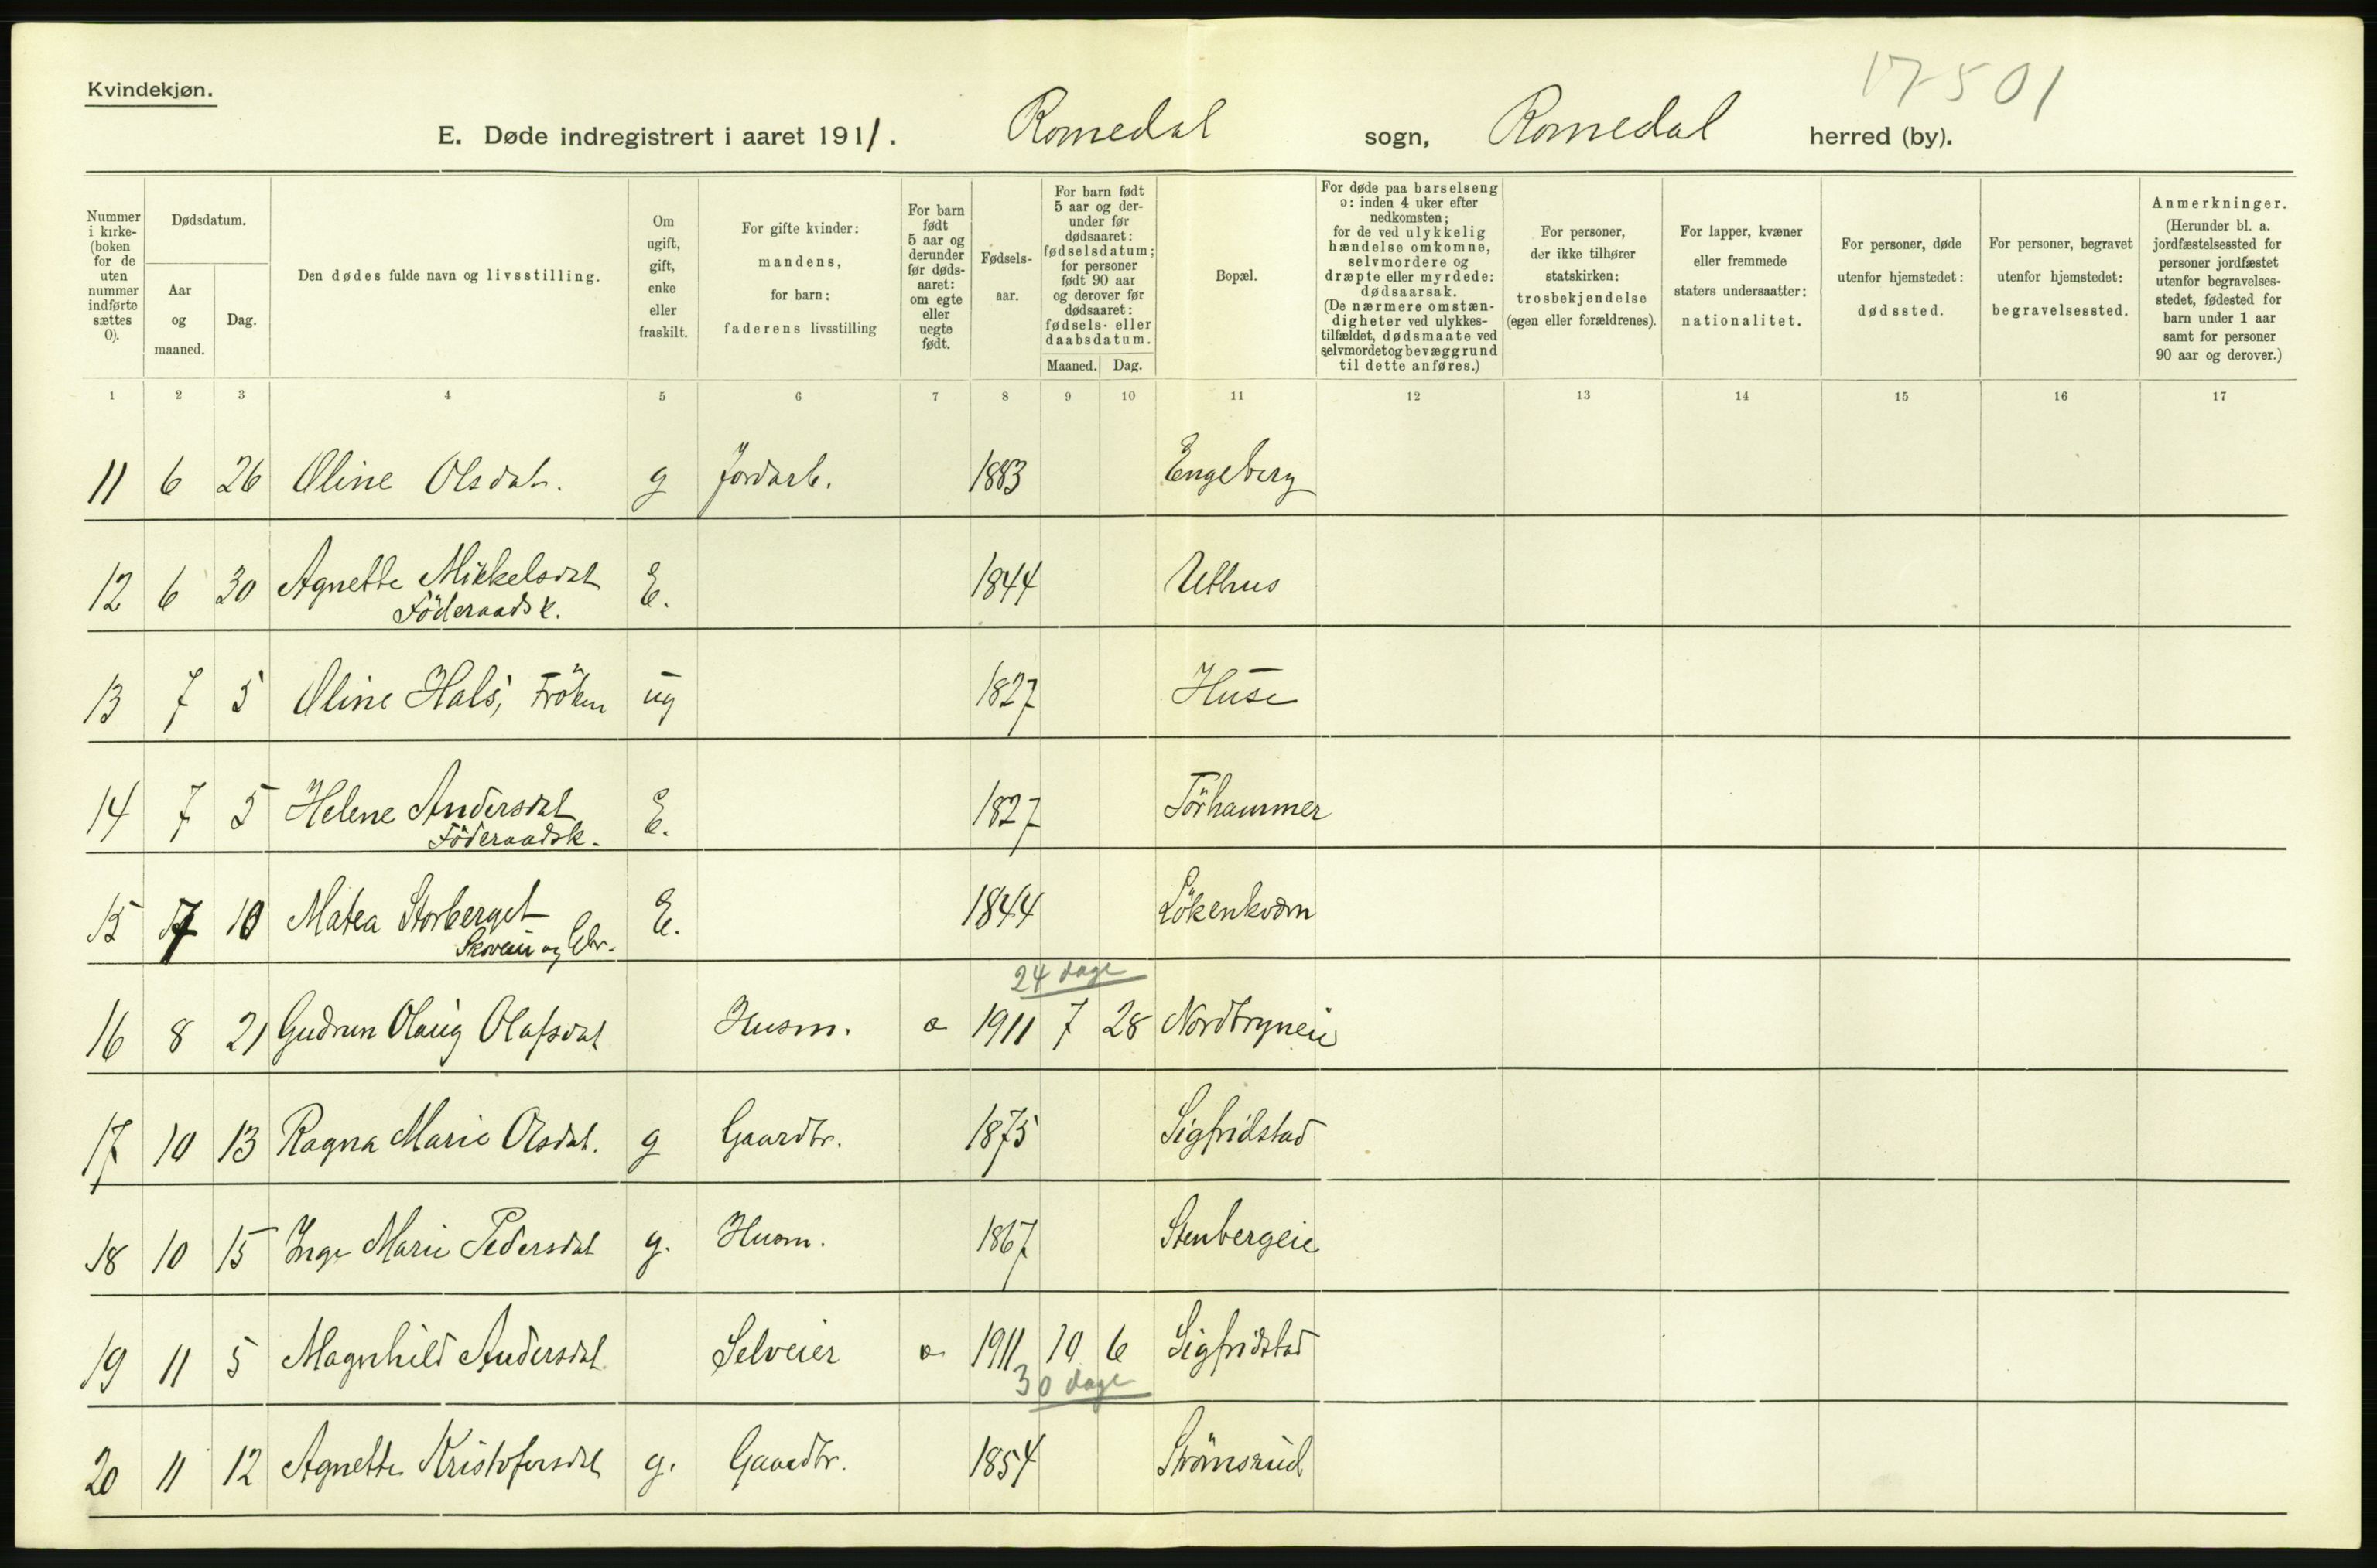 17501
Kvindekjøn.
E. Døde indregistrert i aaret 1911. Romedal sogn, Romedal herred (by).
Nummer i kirke- (boken for de uten nummer indførte sættes 0).
Dødsdatum.
Aar og maaned.
Dag.
Den dødes fulde navn og livsstilling.
Om ugift, gift, enke eller fraskilt.
For gifte kvinder: mandens, for barn: faderens livsstilling
For barn født 5 aar og derunder før døds- aaret: om egte eller uegte født.
Fødsels- aar.
For barn født 5 aar og der- under før dødsaaret: fødselsdatum; for personer født 90 aar og derover før dødsaaret: fødsels- eller daabsdatum.
Maaned. Dag.
Bopæl.
For døde paa barselseng ɔ: inden 4 uker efter nedkomsten; for de ved ulykkelig hændelse omkomne, selvmordere og dræpte eller myrdede: dødsaarsak. (De nærmere omstæn- digheter ved ulykkes- tilfældet, dødsmaate ved selvmord et og bevæggrund til dette anføres.)
For personer, der ikke tilhører statskirken: trosbekjendelse (egen eller forældrenes).
For lapper, kvæner eller fremmede staters undersaatter: nationalitet.
For personer, døde utenfor hjemstedet: dødssted.
For personer, begravet utenfor hjemstedet: begravelsessted.
Anmerkninger. (Herunder bl. a. jordfæstelsessted for personer jordfæstet utenfor begravelses- stedet, fødested for barn under 1 aar samt for personer 90 aar og derover.)
1 2 3 4 5 6 7 8 9 10 11 12 13 14 15 16 17
11 6 26 Oline Olsdat. g Jordarb. 1883 Engeberg
12 6 30 Agnethe Mikkelsdat E. 1844 Uthus
Föderaadsk.
13 7 5 Oline Hals, Fröken ug 1827 Huse
14 7 5 Helene Andersdat E. 1827 Törhammer
Föderaadsk.
15 7 10 Matea Storberget E. 1844 Lökenkvern
16 8 21 Gudrun Olaug Olafsdat Husm. a 1911 7 28 Nordbryneie
24 dage
17 10 13 Ragna Marie Olsdat. g Gaardbr. 1875 Sigfridstad
18 10 15 Inge Marie Pedersdat g. Husm. 1867 Stenbergeie
19 11 5 Magnhild Andersdat Selveier a 1911 10 6 Sigfridstad
30 dage
20 11 12 Agnethe Kristofersdat g. Gaardbr. 1854 Strömsrud